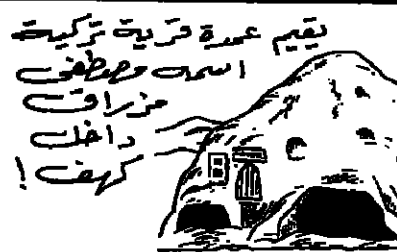 يقيم عمدة قرية تركية
اسمه مصطفى
مزراق
داخل
كهف !